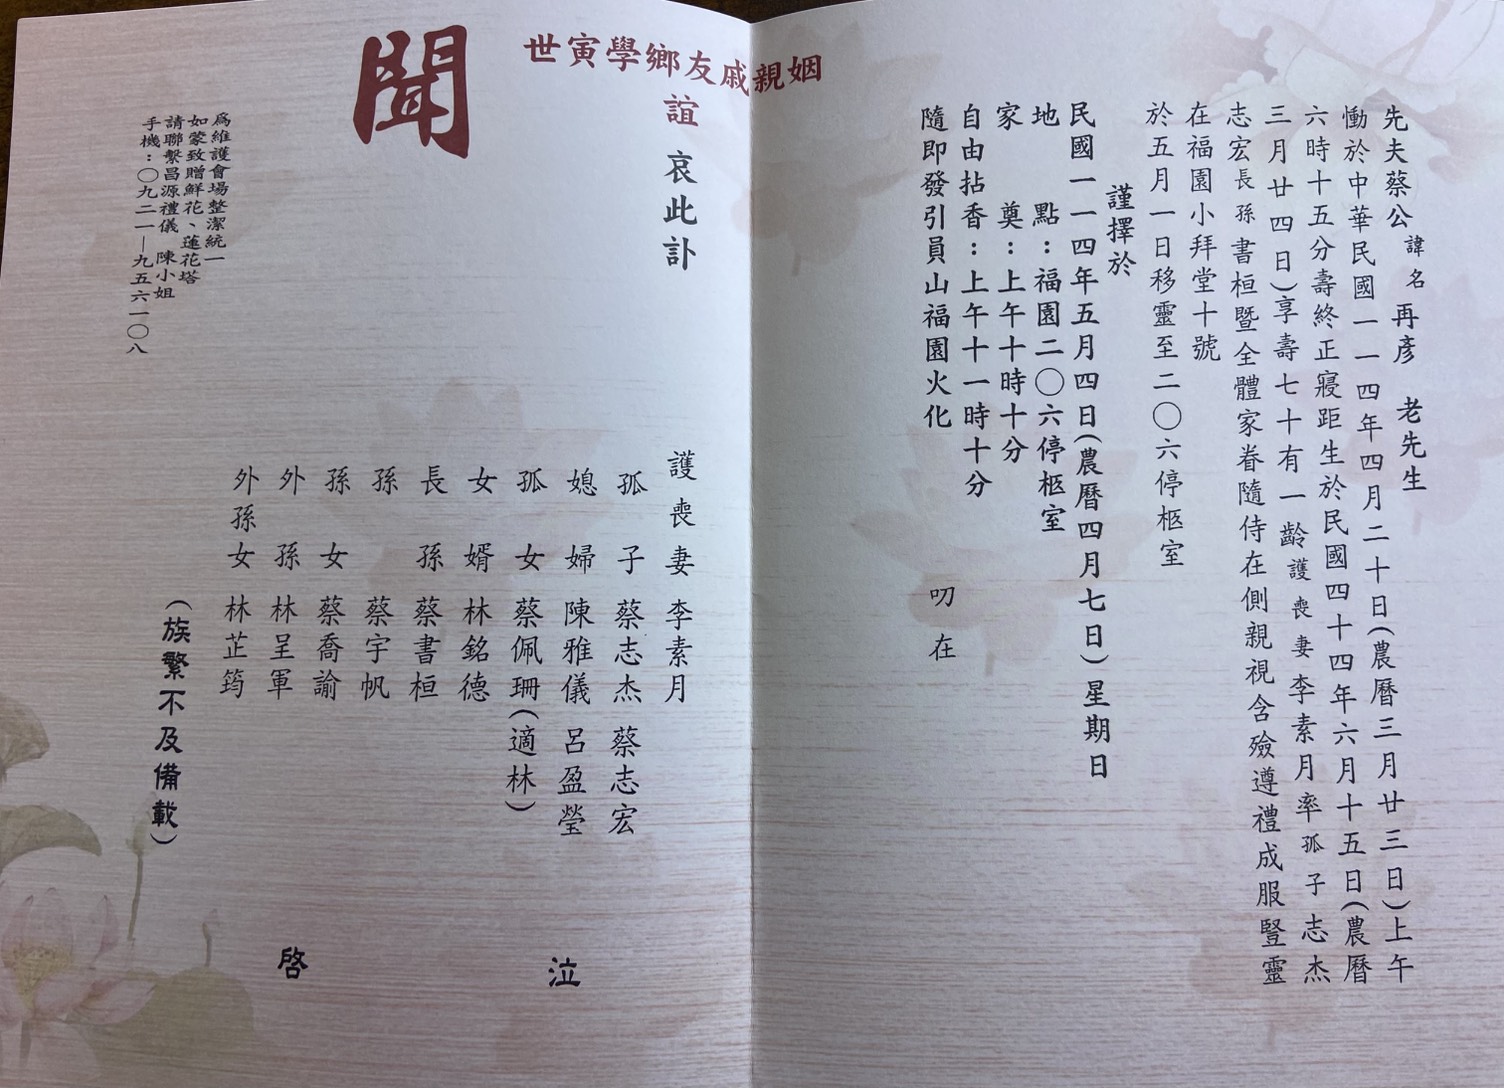 先夫蔡公諱名再彥 老先生
慟於中華民國一一四年四月二十日(農曆三月廿三日)上午
六時十五分壽終正寢距生於民國四十四年六月十五日(農曆
三月廿四日)享壽七十有一齡護喪妻李素月率孤子志杰
志宏長孫書桓暨全體家眷隨侍在側親視含殮遵禮成服豎靈
在福園小拜堂十號
於五月一日移靈至二〇六停柩室
謹擇於
民國一一四年五月四日(農曆四月七日)星期日
地點:福園二〇六停柩室
家奠:上午十時十分
自由拈香:上午十一時十分
隨即發引員山福園火化
叨在
姻親戚友鄉學寅世
誼 哀此訃
聞
護喪妻 李素月
孤子 蔡志杰 蔡志宏
媳婦 陳雅儀 呂盈瑩
孤女 蔡佩珊(適林)
女婿 林銘德
長孫 蔡書桓
孫 蔡宇帆
孫女 蔡喬諭
外孫 林呈軍
外孫女 林芷筠
(族繁不及備載)
泣
啓
為維護會場整潔統一
如蒙致贈鮮花、蓮花塔
請聯繫昌源禮儀 陳小姐
手機:〇九二一—九五六一〇八